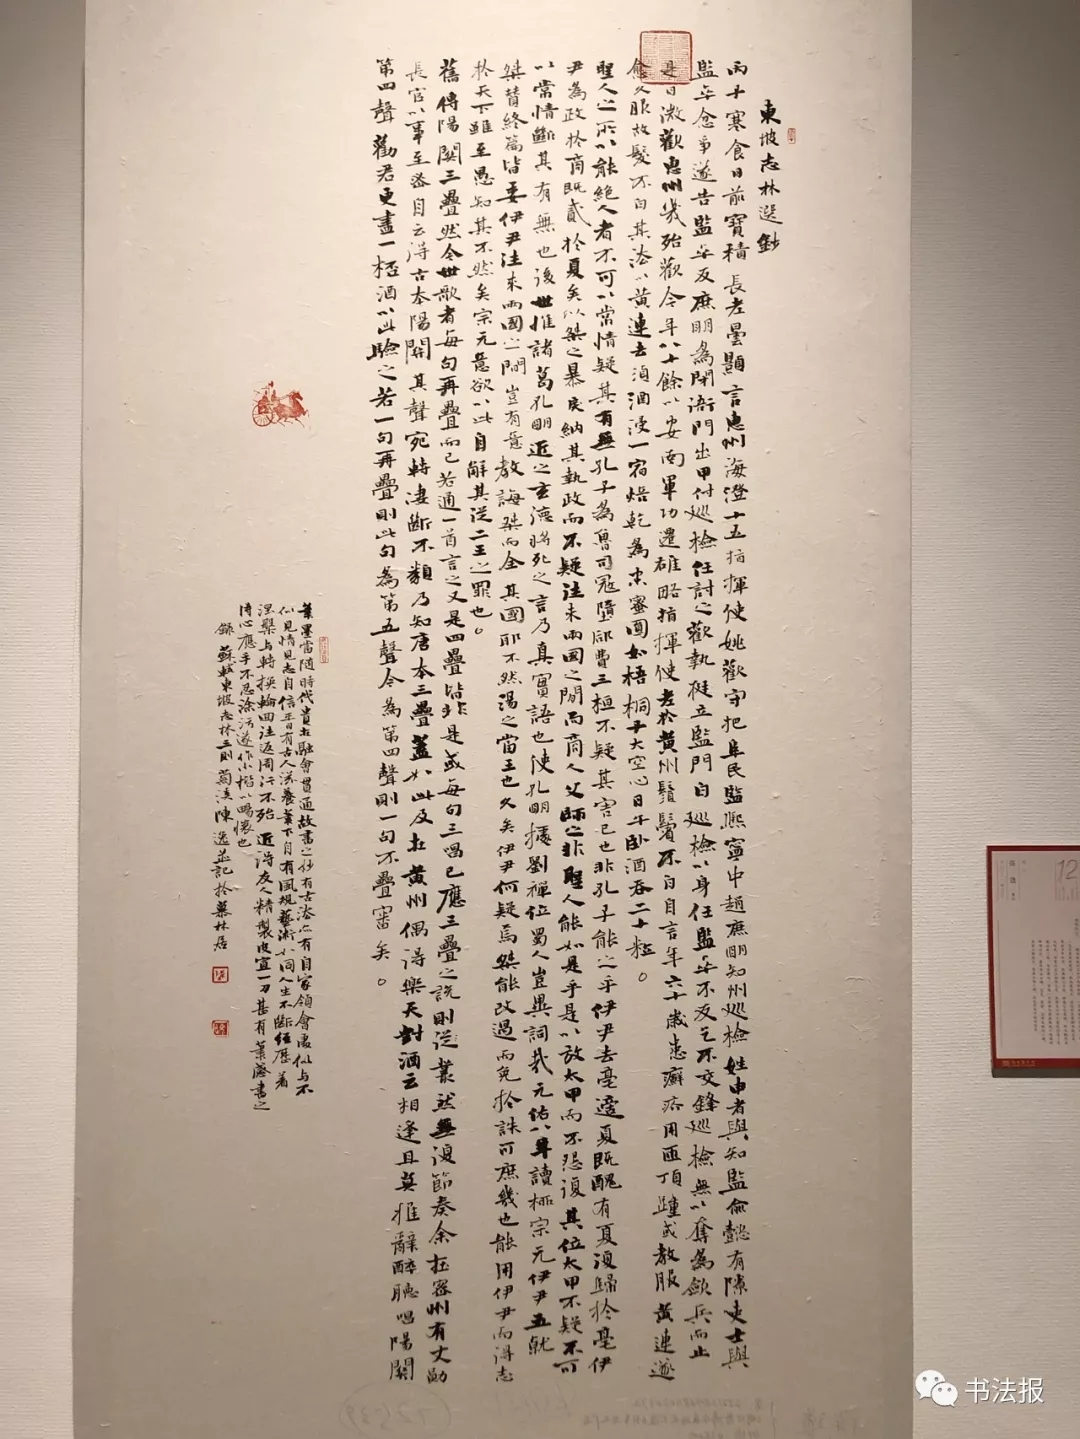 東坡志林選鈔
丙子寒食日前寶積長老曇顯言惠州海澄十五指揮使姚歡守把阜民監熙寧中趙庶明知州巡檢姓申者與知監俞懿有隙吏士與
監卒忿爭遂告監卒反庶明為閉衙門出甲付巡檢往討之歡執挺立監門白巡檢以身任監卒不反乞不交鋒巡檢無以奪為斂兵而止
是日微歡惠州幾殆歡今年八十餘以安南軍功遷雄略指揮使老於黃州鬚鬢不白自言年六十歲患癬疥用匝頂踵或教服黃連遂
愈久服故髮不白其法以黃連去須酒浸一宿焙乾為末蜜圓如梧桐子大空心日午臥酒吞二十粒。
聖人之所以能絕人者不可以常情疑其有無孔子為魯司寇墮郈費三桓不疑其害己也非孔子能之乎伊尹去亳適夏既醜有夏復歸於亳伊
尹為政於商既貳於夏矣以桀之暴戾納其執政而不疑往來兩國之間而商人父師之非聖人能如是乎是以放太甲而不怨復其位太甲不疑不可
以常情斷其有無也後世惟諸葛孔明近之玄德將死之言乃真實語也使孔明據劉禪位蜀人豈異詞哉元佑八年讀柳宗元伊尹五就
桀贊終篇皆妄伊尹往來兩國之間豈有意教誨桀而全其國耶不然湯之當王也久矣伊尹何疑焉桀能改過而免於誅可庶幾也能用伊尹而得志
於天下雖至愚知其不然矣宗元意欲以此自解其從二王之罪也。
舊傳陽關三疊然今世歌者每句再疊而已若通一首言之又是四疊皆非是或每句三唱已應三疊之說則從叢然無復節奏余在密州有文勛
長官以事至密自云得古本陽關其聲宛轉淒斷不類乃知唐本三疊蓋如此及在黃州偶得樂天對酒云相逢且莫推辭醉聽唱陽關
第四聲勸君更盡一杯酒以此驗之若一句再疊則此句為第五聲今為第四聲則一句不疊審矣。
筆墨當隨時代貴在融會貫通故書之妙有古法亦有自家領會處似與不
似見情見志自信平日有古人滋養筆下自有風規藝術如同人生不斷經歷著
涅槃與轉換輪回往返周行不殆近得友人精製皮宣一刀甚有筆感書之
得心應手不忍塗污遂作小楷以暢懷也
錄蘇軾東坡志林三則菊溪陳逸並記於慕林居
12
书法报